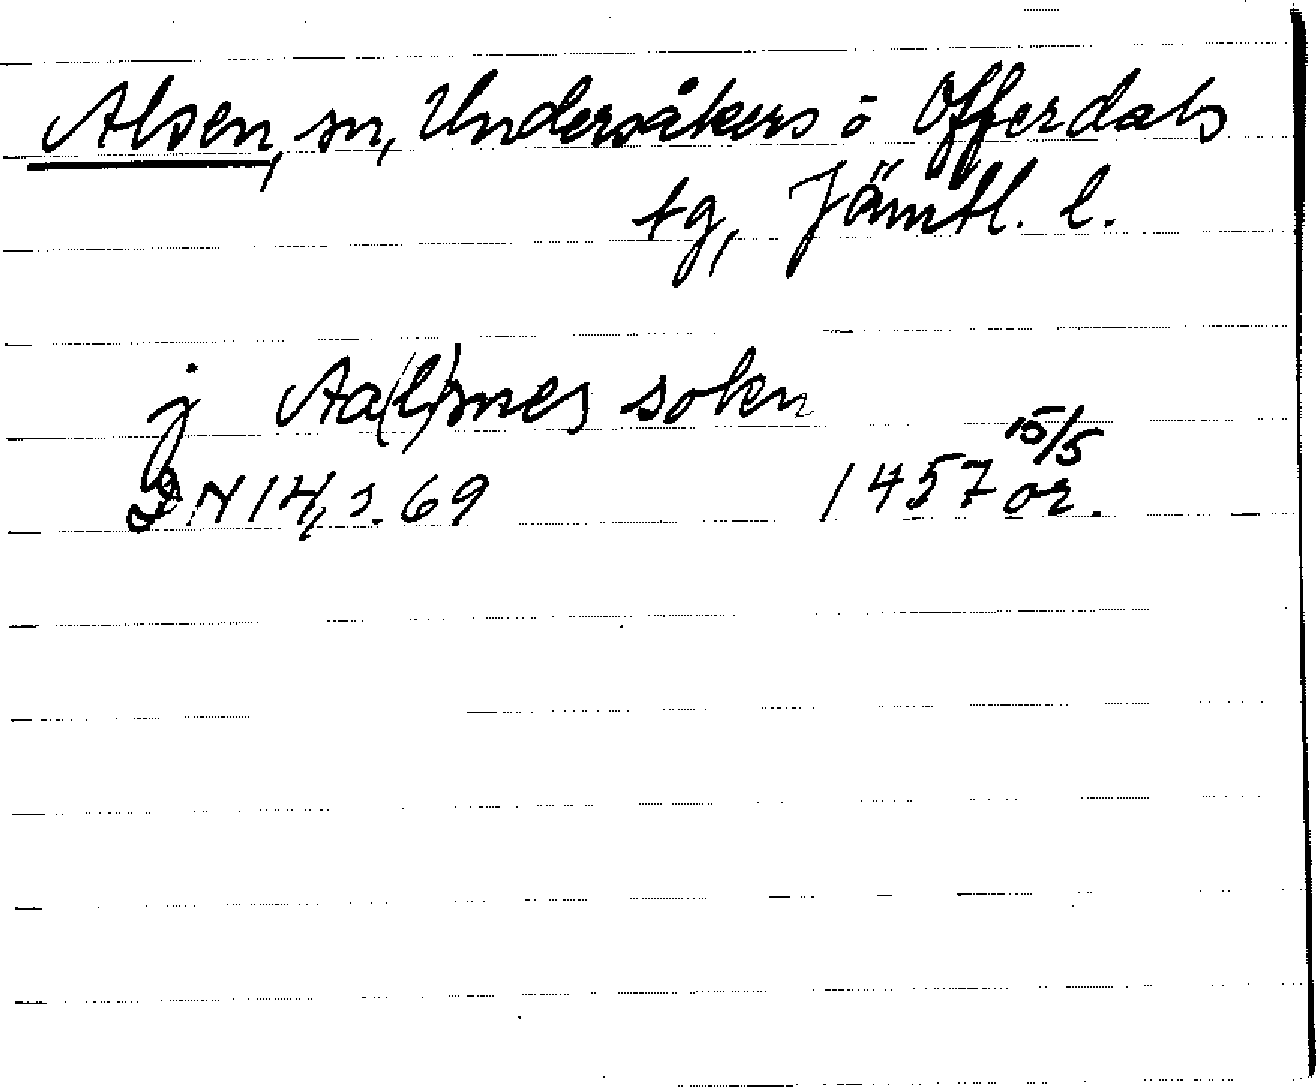 Alsen, sn, Undersåkers o Offerdals
tg, Jämtl. l.
j Aa(l)snes sokn
DN 14, s. 69 1457 15/5 or.